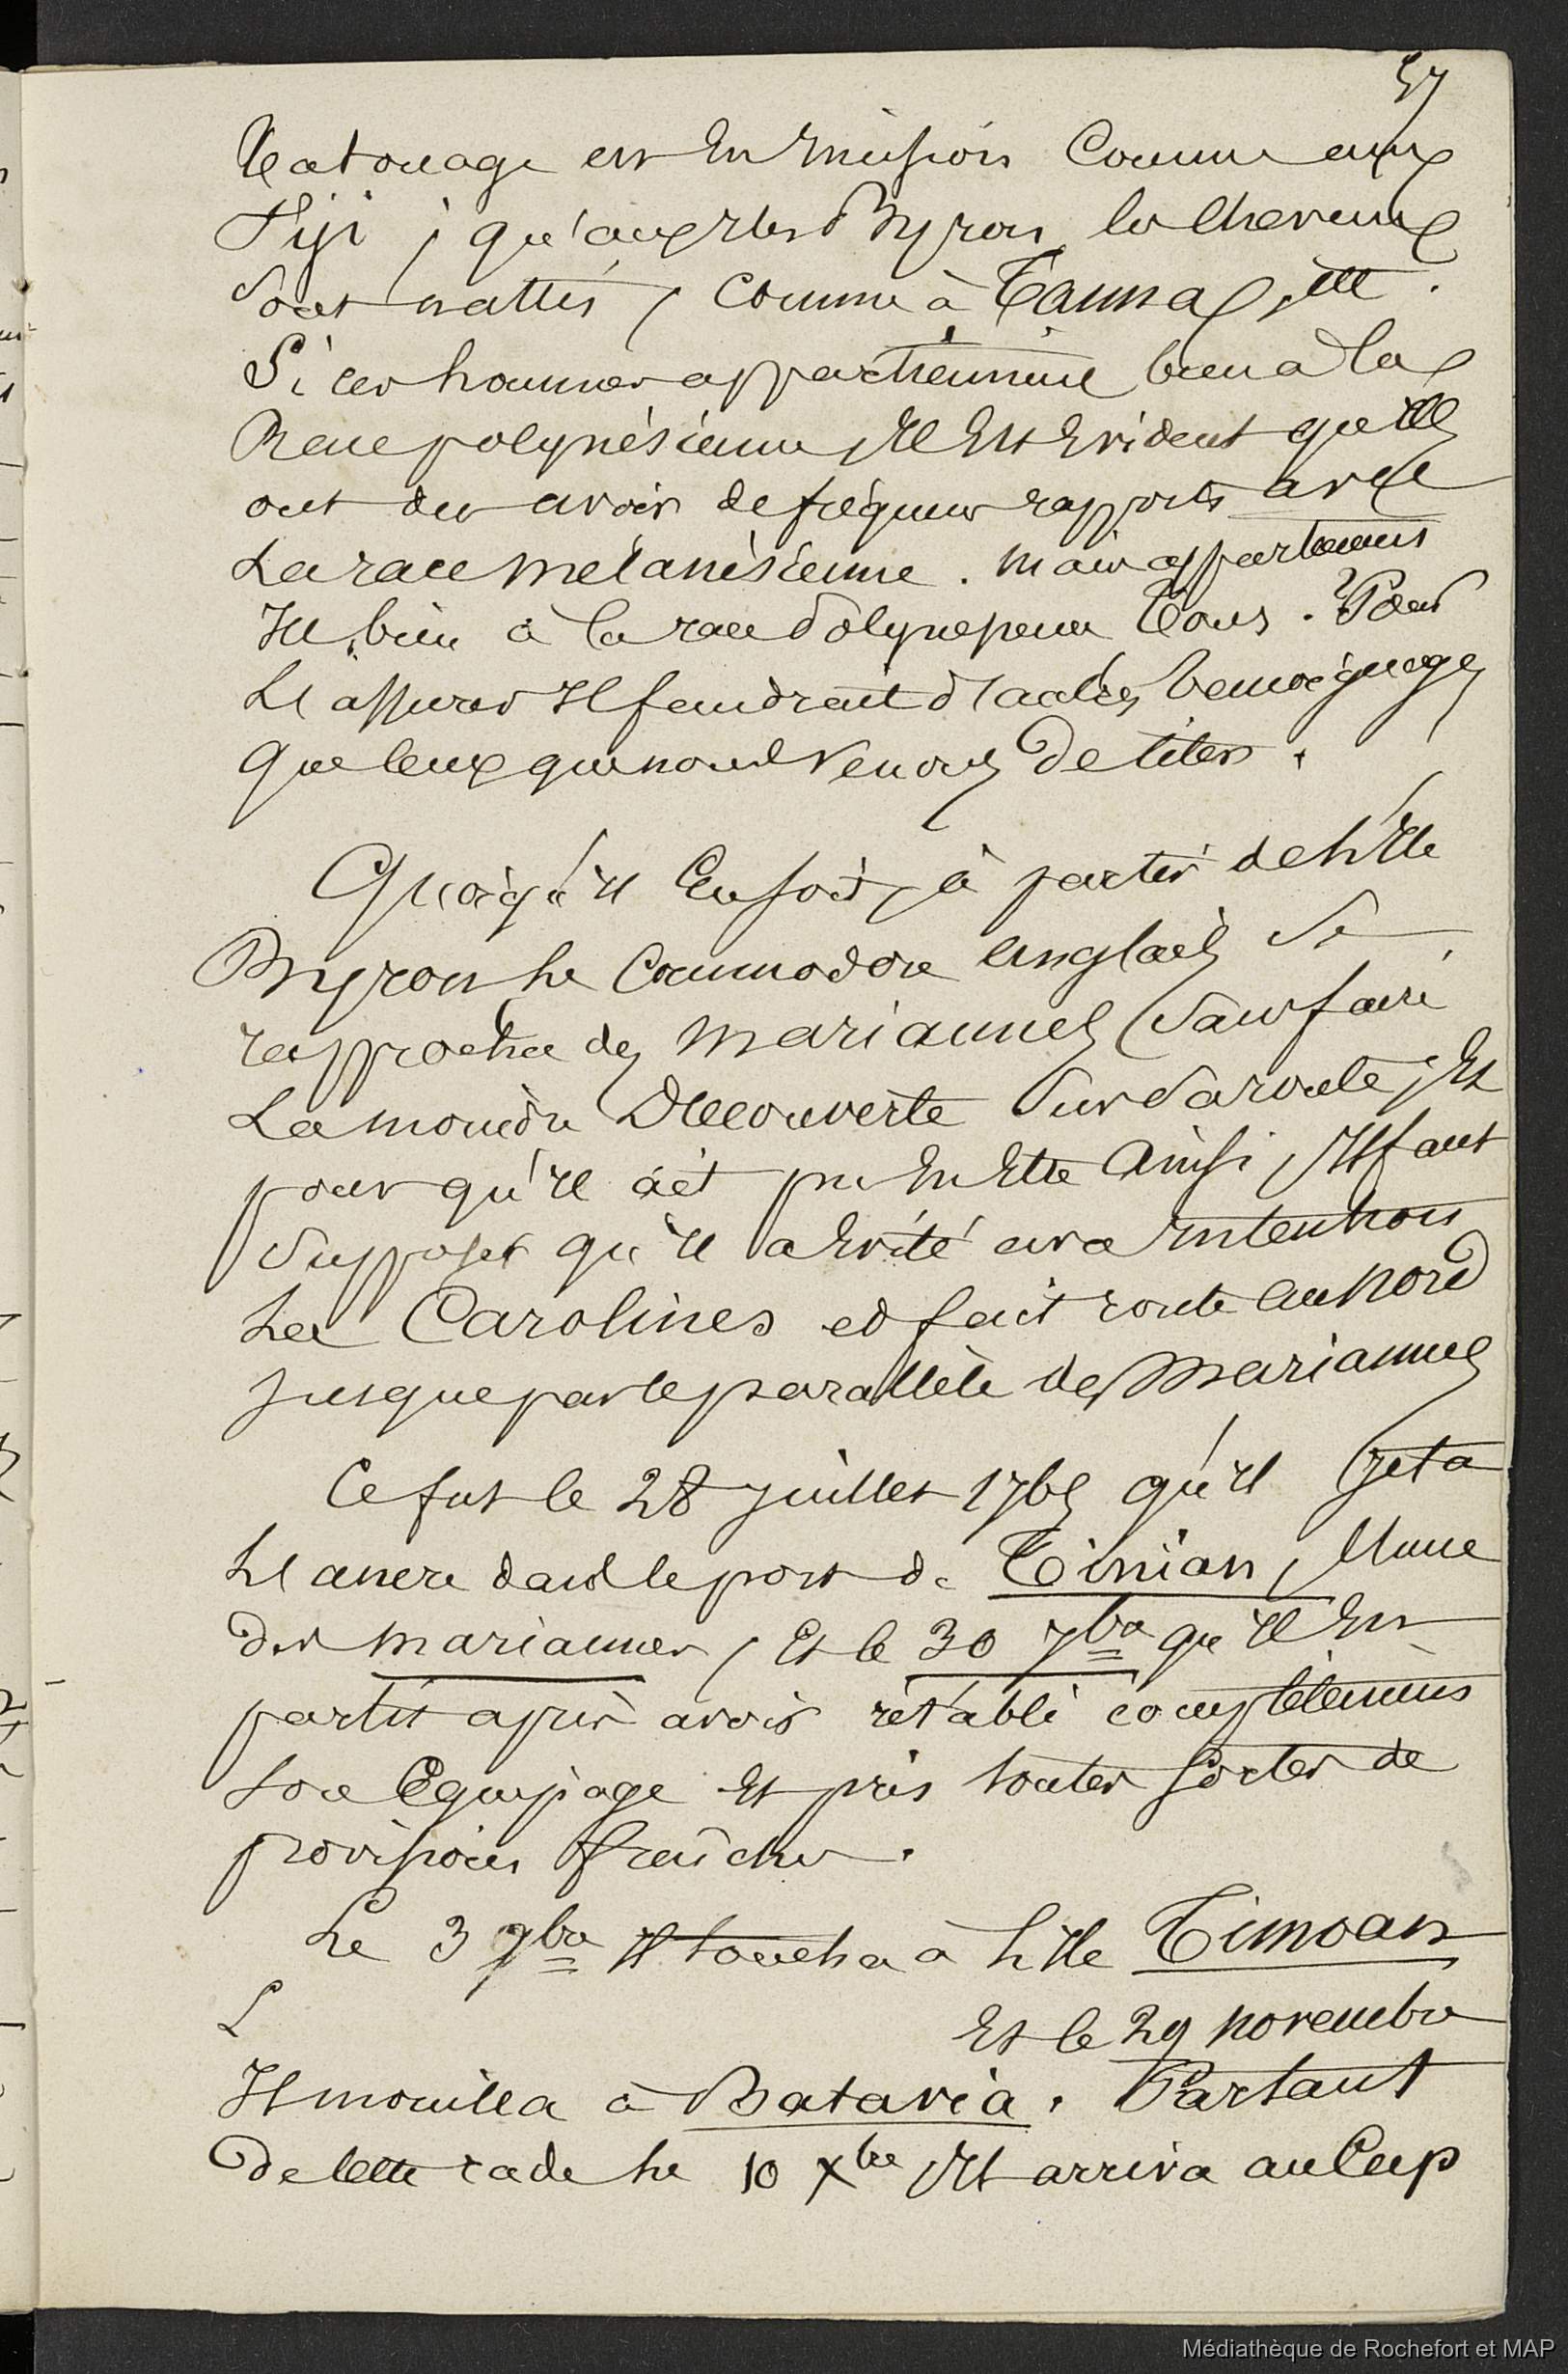 57
Tatouage est en incision comme aux
Fiji ; qu'aux îles Byron, les cheveux
sont nattés, comme à Tanna, etc.
Si ces hommes appartiennent bien à la
Race polynésienne, Il Est Evident qu'ils
ont du avoir de fréquens rapports avec
La race mélanésienne. mais appartiennent
Ils bien à la race Polynésienne tous ? Pour
L'assurer Il faudrait d'autres témoignages
que ceux que nous Venons de citer.
Quoiqu'il En soit, à partir de l'Ile
Byron le Commodore anglais se
rapprocha des Mariannes sans faire
La moindre Découverte sur sa route ; Et
pour qu'Il ait pu En Etre Ainsi, Il faut
supposer qu'Il a Evité avec Intention
Les Carolines et fait route au Nord
Jusque par le parallèle des Mariannes
Ce fut le 28 juillet 1765 qu'Il Jeta
L'ancre dans le port de Tinian, l'Une
des Mariannes, Et le 30 7bre qu'Il En
partit après avoir rétabli complètement
son Equipage Et pris toutes sortes de
provisions fraîches.
Le 3 9bre Il toucha à l'Ile Timoan
L
Et le 29 novembre
Il mouilla à Batavia. Partant
De cette rade le 10 Xbre, Il arriva au Cap
Médiathèque de Rochefort et MAP